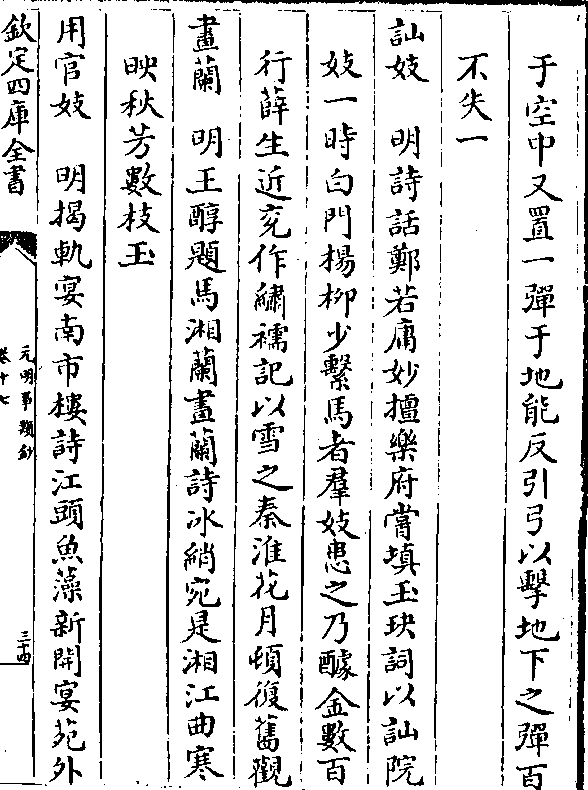 于空中又置一彈于地能反引弓以擊地下之彈百
不失一
訕妓　明詩話鄭若庸妙擅樂府嘗填玉玦詞以訕院
妓一時白門楊柳少繫馬者羣妓患之乃醵金數百
行薛生近兖作繡襦記以雪之秦淮花月頓復舊觀
畫蘭　明王醇題馬湘蘭畫蘭詩冰綃宛是湘江曲寒
映秋芳數枝玉
用官妓　明揭軌宴南市樓詩江頭魚藻新開宴苑外
欽定四庫全書
元明事類鈔
卷十七
三十四